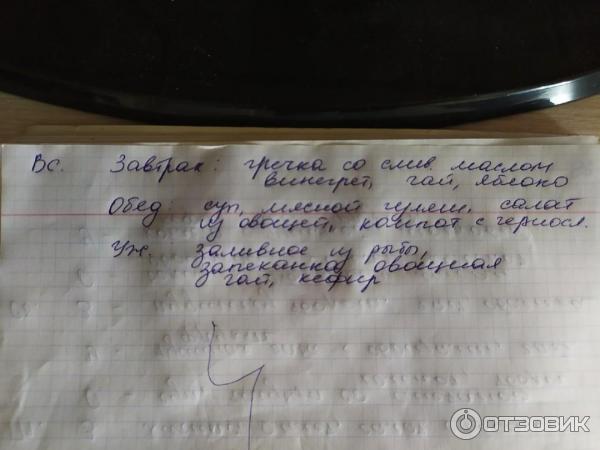 Вс. Завтрак: гречка со слив. маслом
винегрет, чай, яблоко
Обед: суп, мясной гуляш, салат
из овощей, компот с чернос.
Уж. заливное из рыбы,
запеканка овощная
чай, кефир
ОТЗОВИК